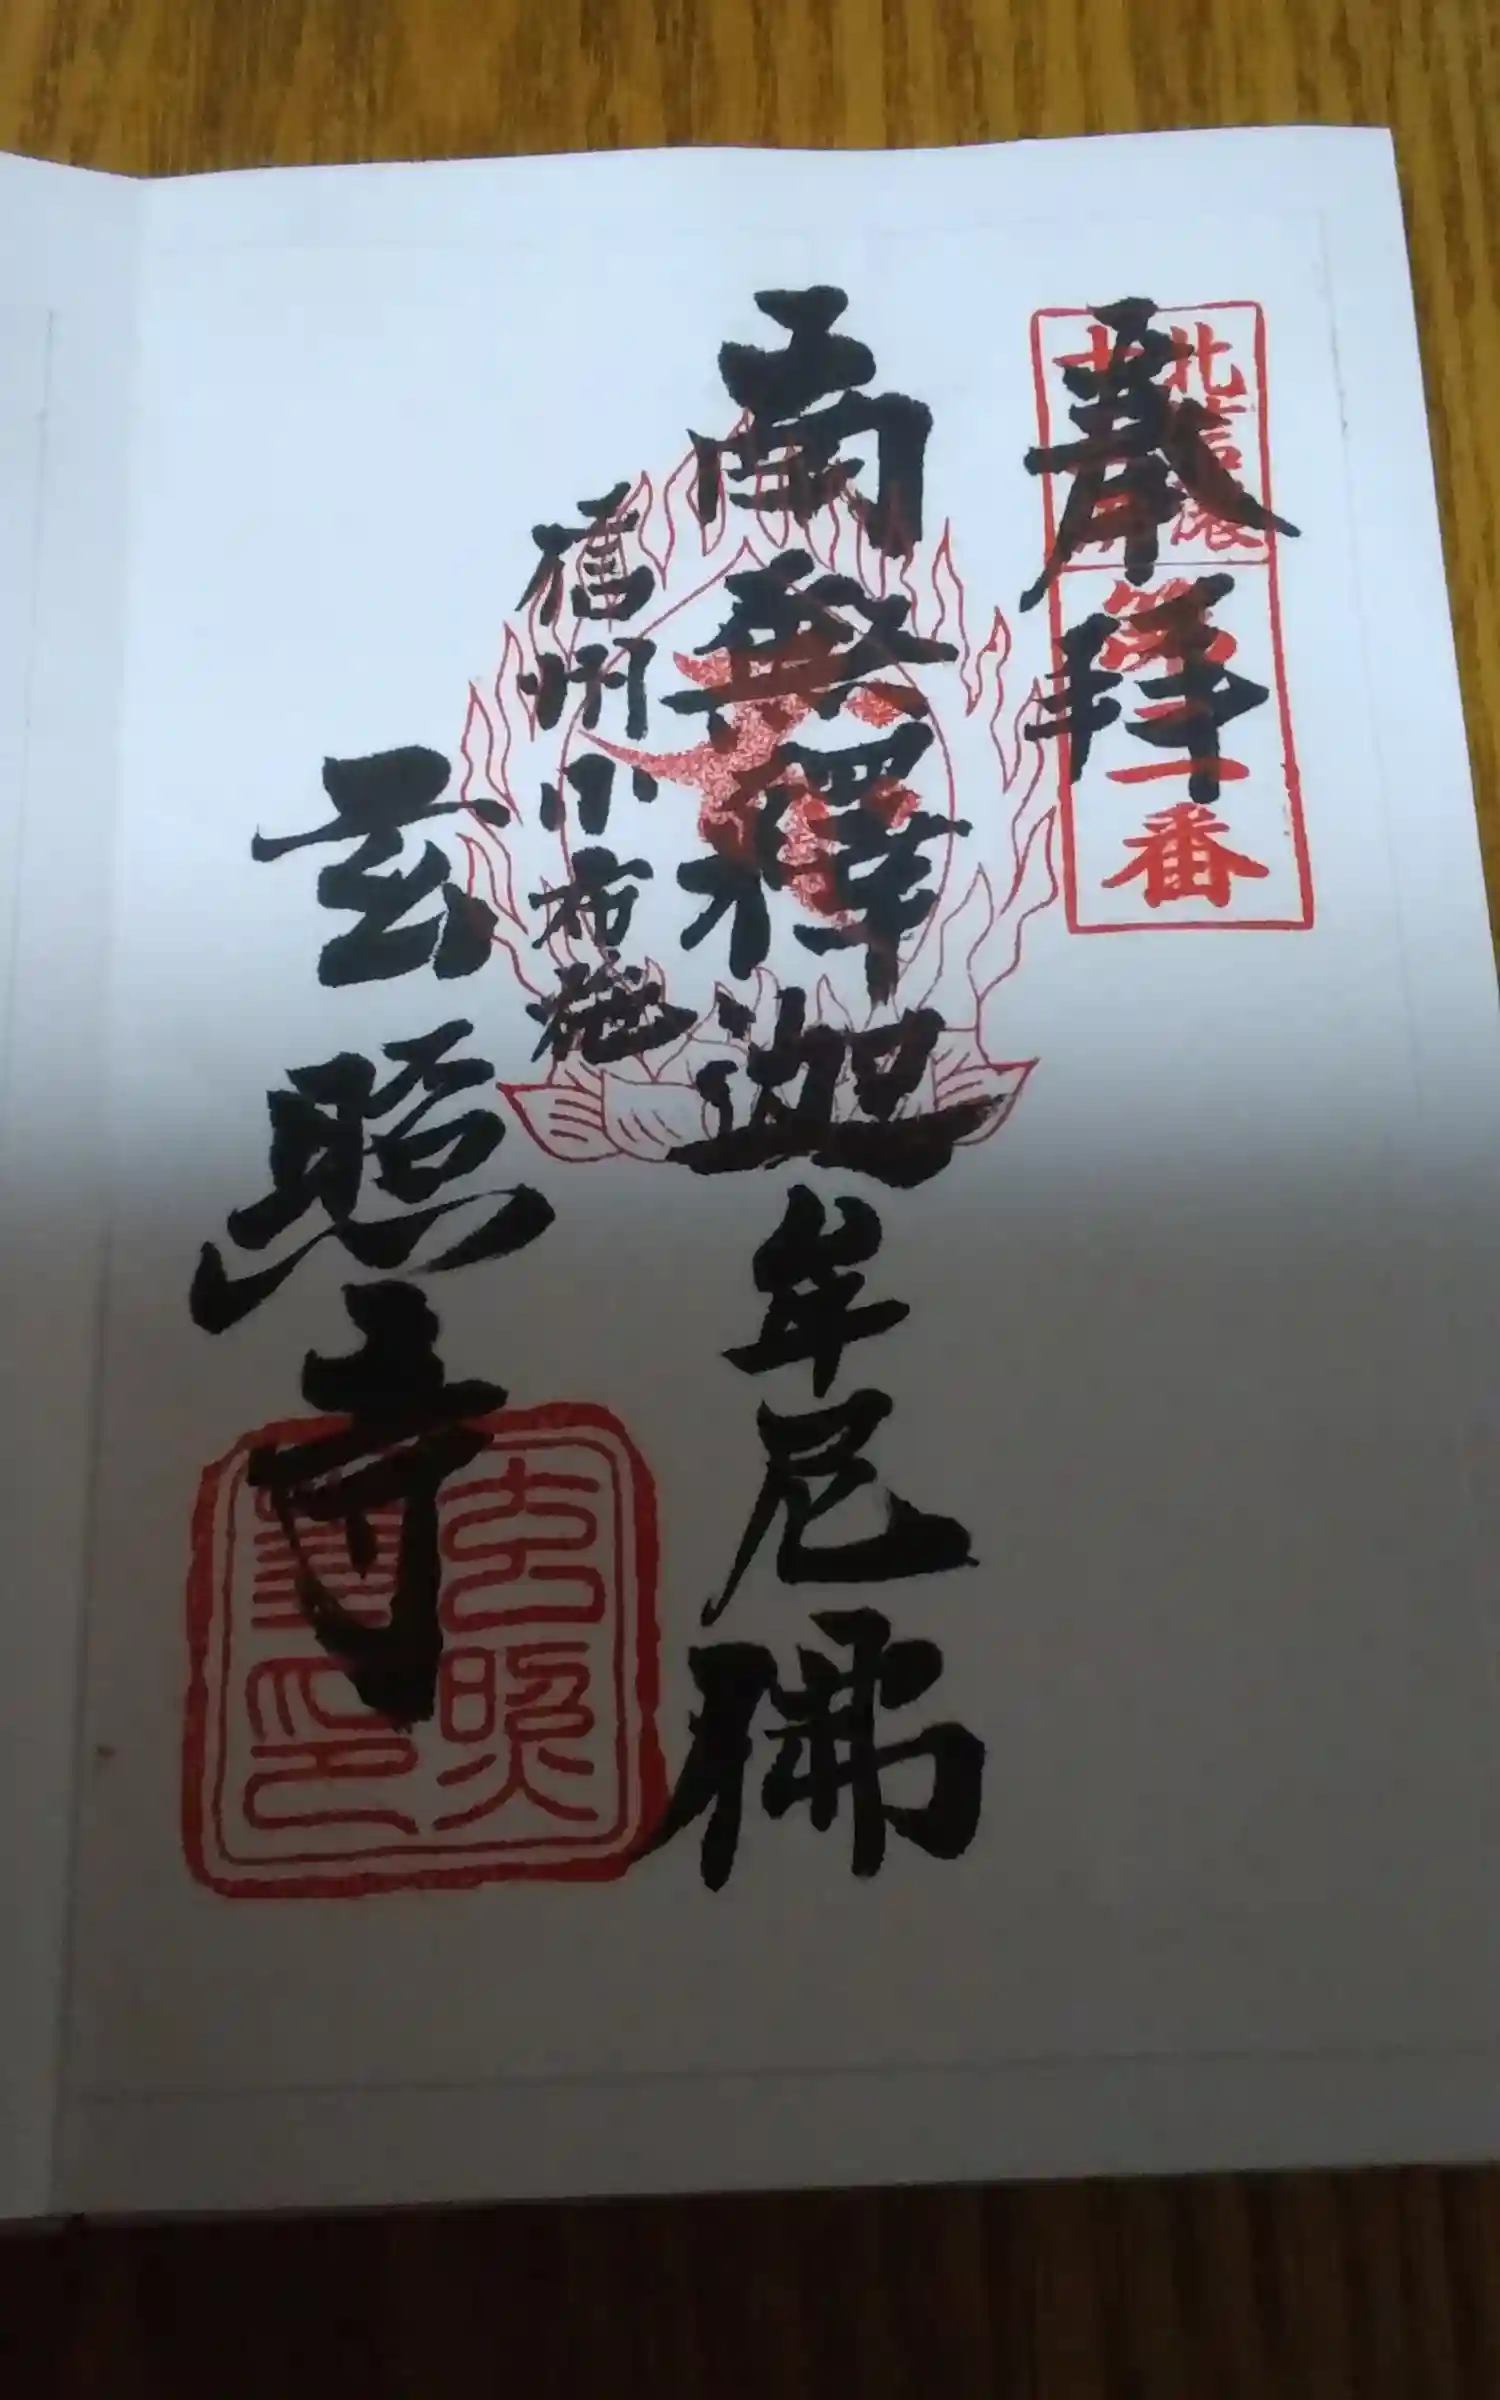 嚴拝
第一番
南無釋迦牟尼佛
信州小布施
玄照寺
玄照